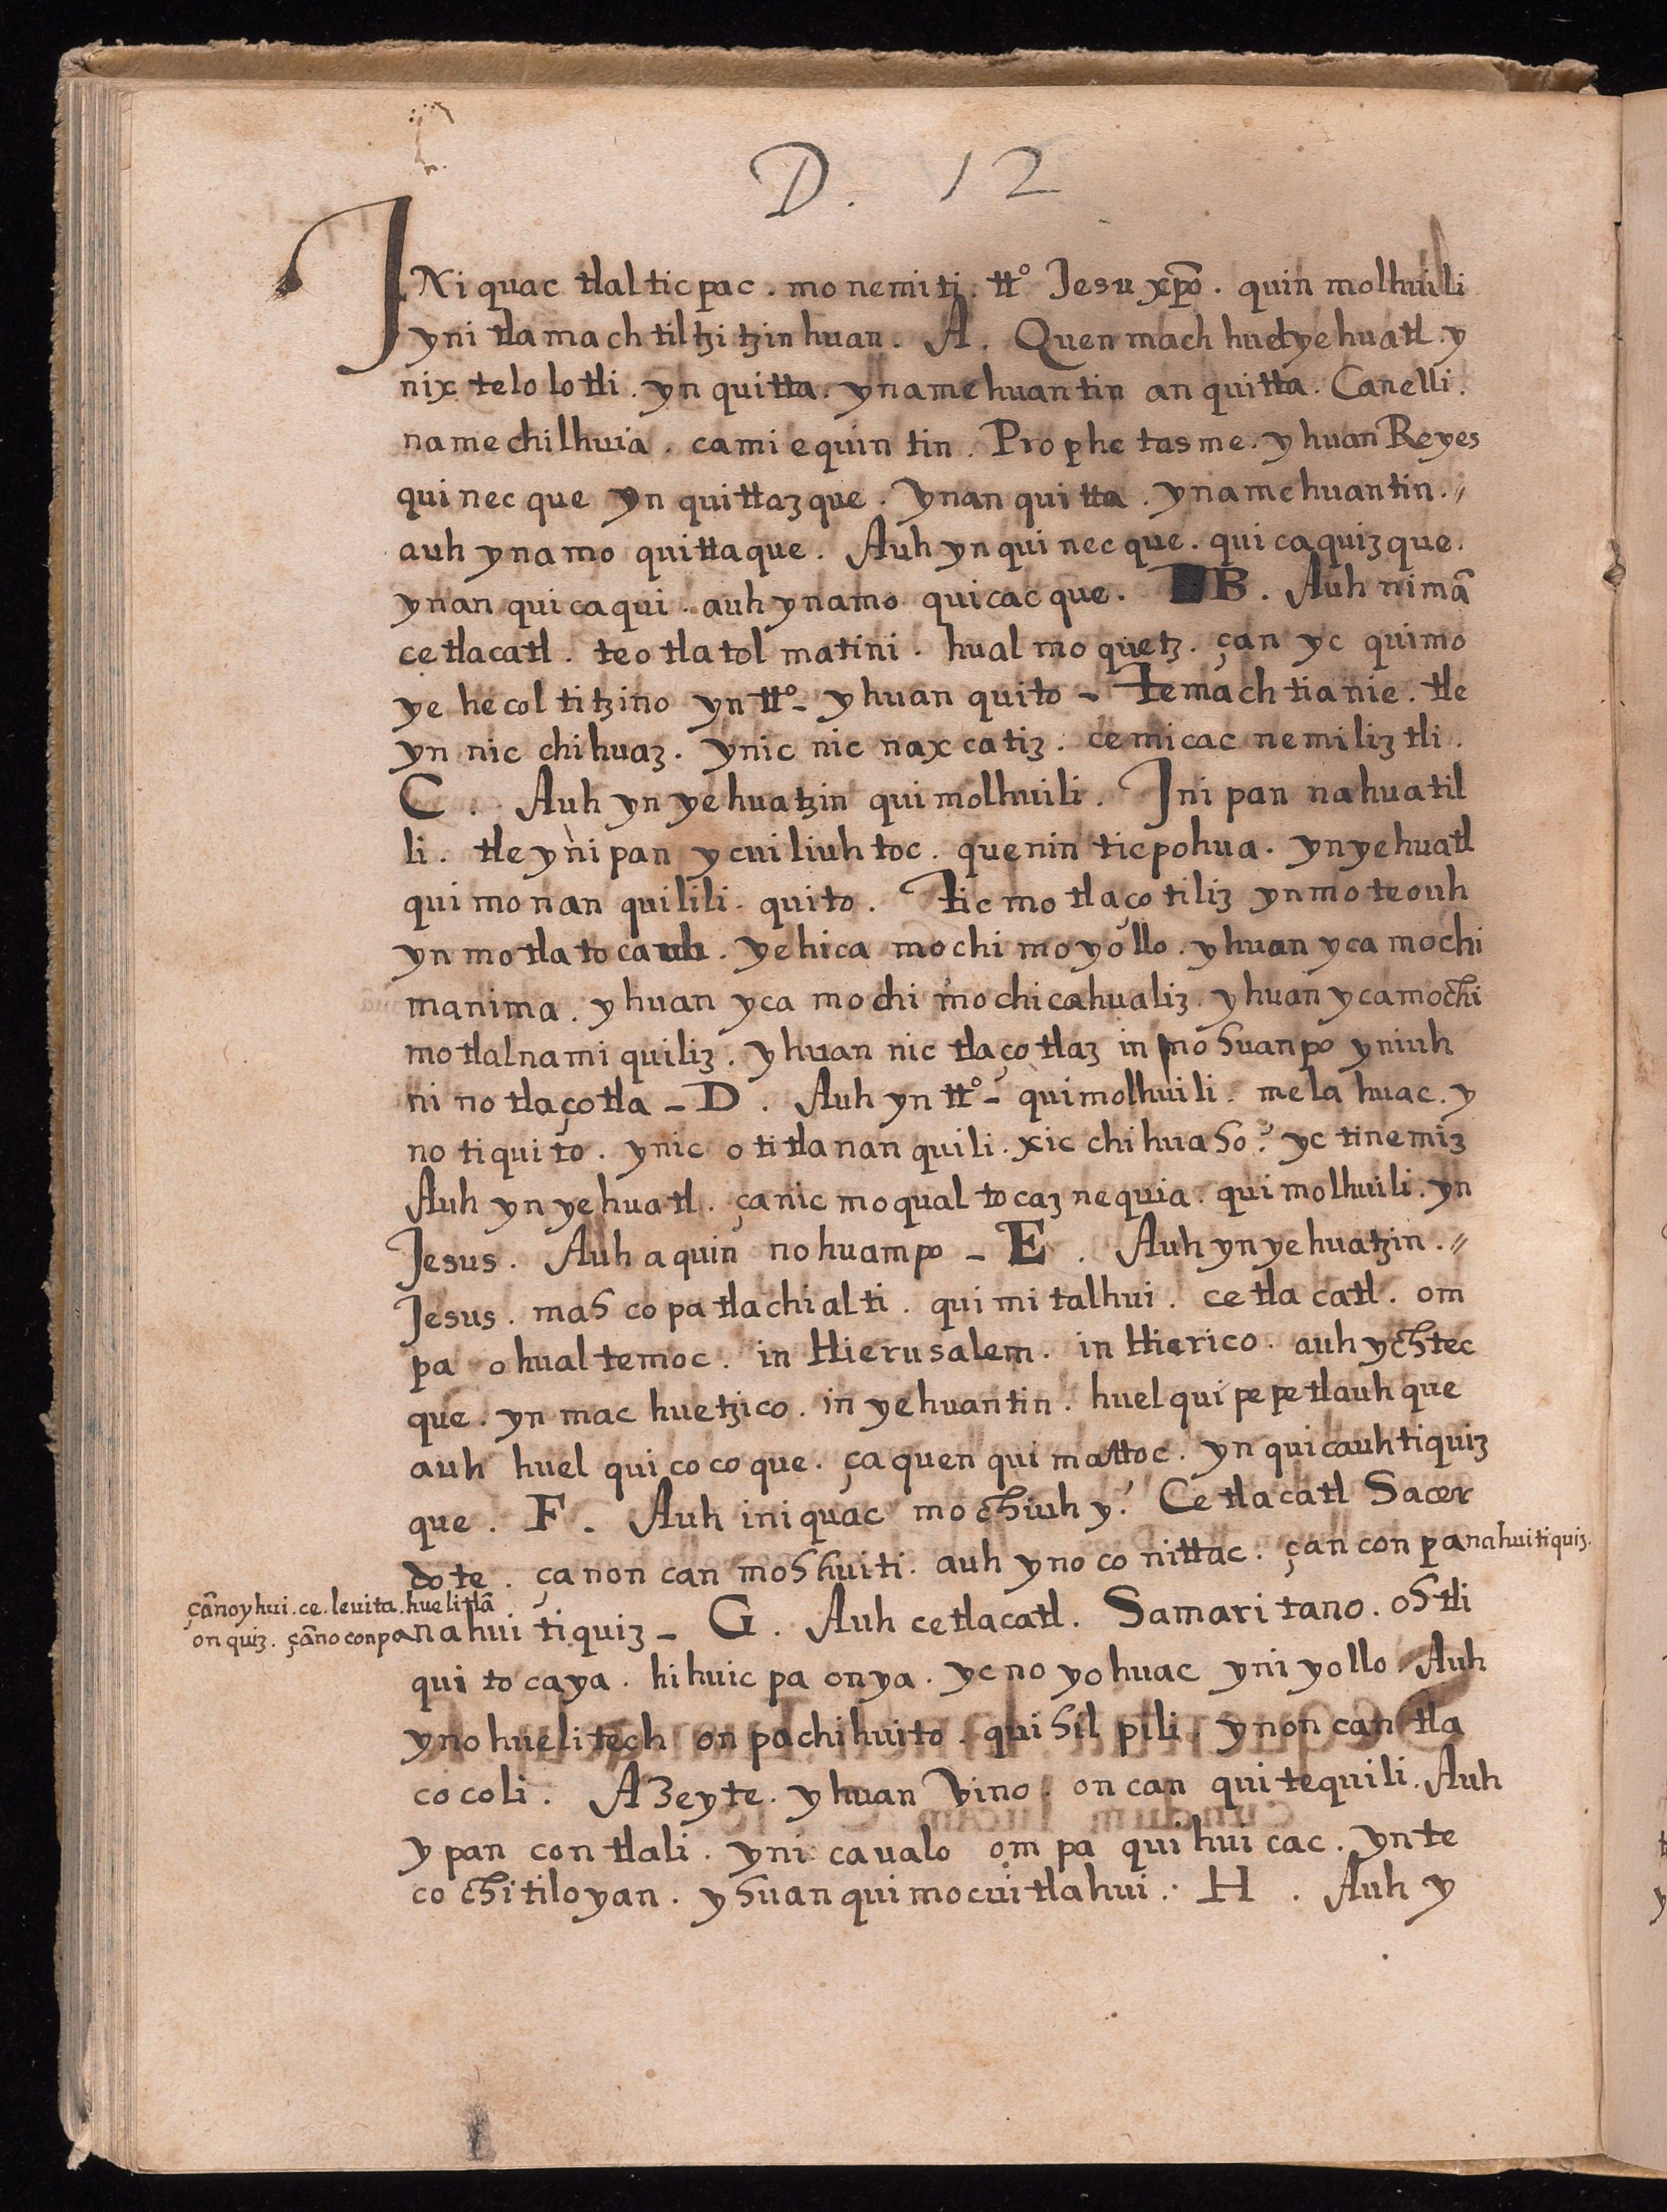 D. 12
INi quac tlal tic pac. mo nemi ti. tto Jesu xpo. quin molhuili
yni tla mach til tzi tzin huan. A. Quen mach huel yehuatl. y
nix te lo lo tli. yn quitta. yn ame huan tin an quitta. Ca nelli.
name chilhuia. ca mi equin tin. Pro phe tas me. y huan Reyes
qui nec que yn quittaz que. ynan qui tta. yn ame huantin.〃
auh yn amo quitta que. Auh yn qui nec que. qui ca quiz que.
ynan qui ca qui. auh yn amo qui cac que. B. Auh nimã
ce tlacatl. teo tla tol matini. hual mo quetz. çan yc quimo
ye he col ti tzino yn tto - y huan quito - Te mach tia nie. tle
yn nic chi huaz. ynic nic nax ca tiz. ce mi cac ne mi liz tli.
C. Auh yn ye hua tzin qui molhuili. Ini pan nahuatil
li. tle yni pan y cui liuh toc. que nin tic po hua. yn yehuatl
qui mo nan qui lili. qui to. Tic mo tla ço tiliz yn mo teouh
yn mo tla to cauh. ye hica mochi mo yollo. y huan yca mochi
manima. y huan yca mo chi mo chi ca hualiz. y huan y ca mochi
mo tlal na mi quiliz. y huan nic tla ço tlaz in mo huan po yniuh
ni no tla ço tla - D. Auh yn tto - qui molhuili. me la huac. y
no ti qui to. ynic o ti tla nan qui li. xic chi hua ho? yc ti nemiz
Auh yn ye huatl. ça nic mo qual to caz nequia. qui molhuili. yn
Jesus. Auh a quin no huam po - E. Auh yn ye huatzin.〃
Jesus. mah co pa tla chi al ti. qui mi talhui. ce tla catl. om
pa o hual temoc. in Hierusalem. in Hierico. auh ychtec
que. yn mac huetzi co. in ye huan tin. huel qui pe pe tlauh que
auh huel qui co co que. ça quen qui mattoc. yn qui cauh ti quiz
que. F. Auh ini quac mo chiuh y? Ce tla catl Sacer
dote. ça non can mo hhuiti. auh yno co nittac. çan con pa nahui ti quiz.
çãno y hui. ce. leuita. huel i tlã
on quiz. çãno con pa na hui ti quiz - G. Auh ce tla catl. Samari tano. ohtli
qui to ca ya. hi huic pa on ya. yc no yo huac yni yollo. Auh
yno huel i tech on pa chi hui to. qui hil pili. yn on can tla
co coli. Azeyte. y huan Vino. on can qui te quili. Auh
y pan con tlali. yni caualo om pa qui hui cac. yn te
co chi ti lo yan. y huan qui mo cui tla hui. H. Auh y